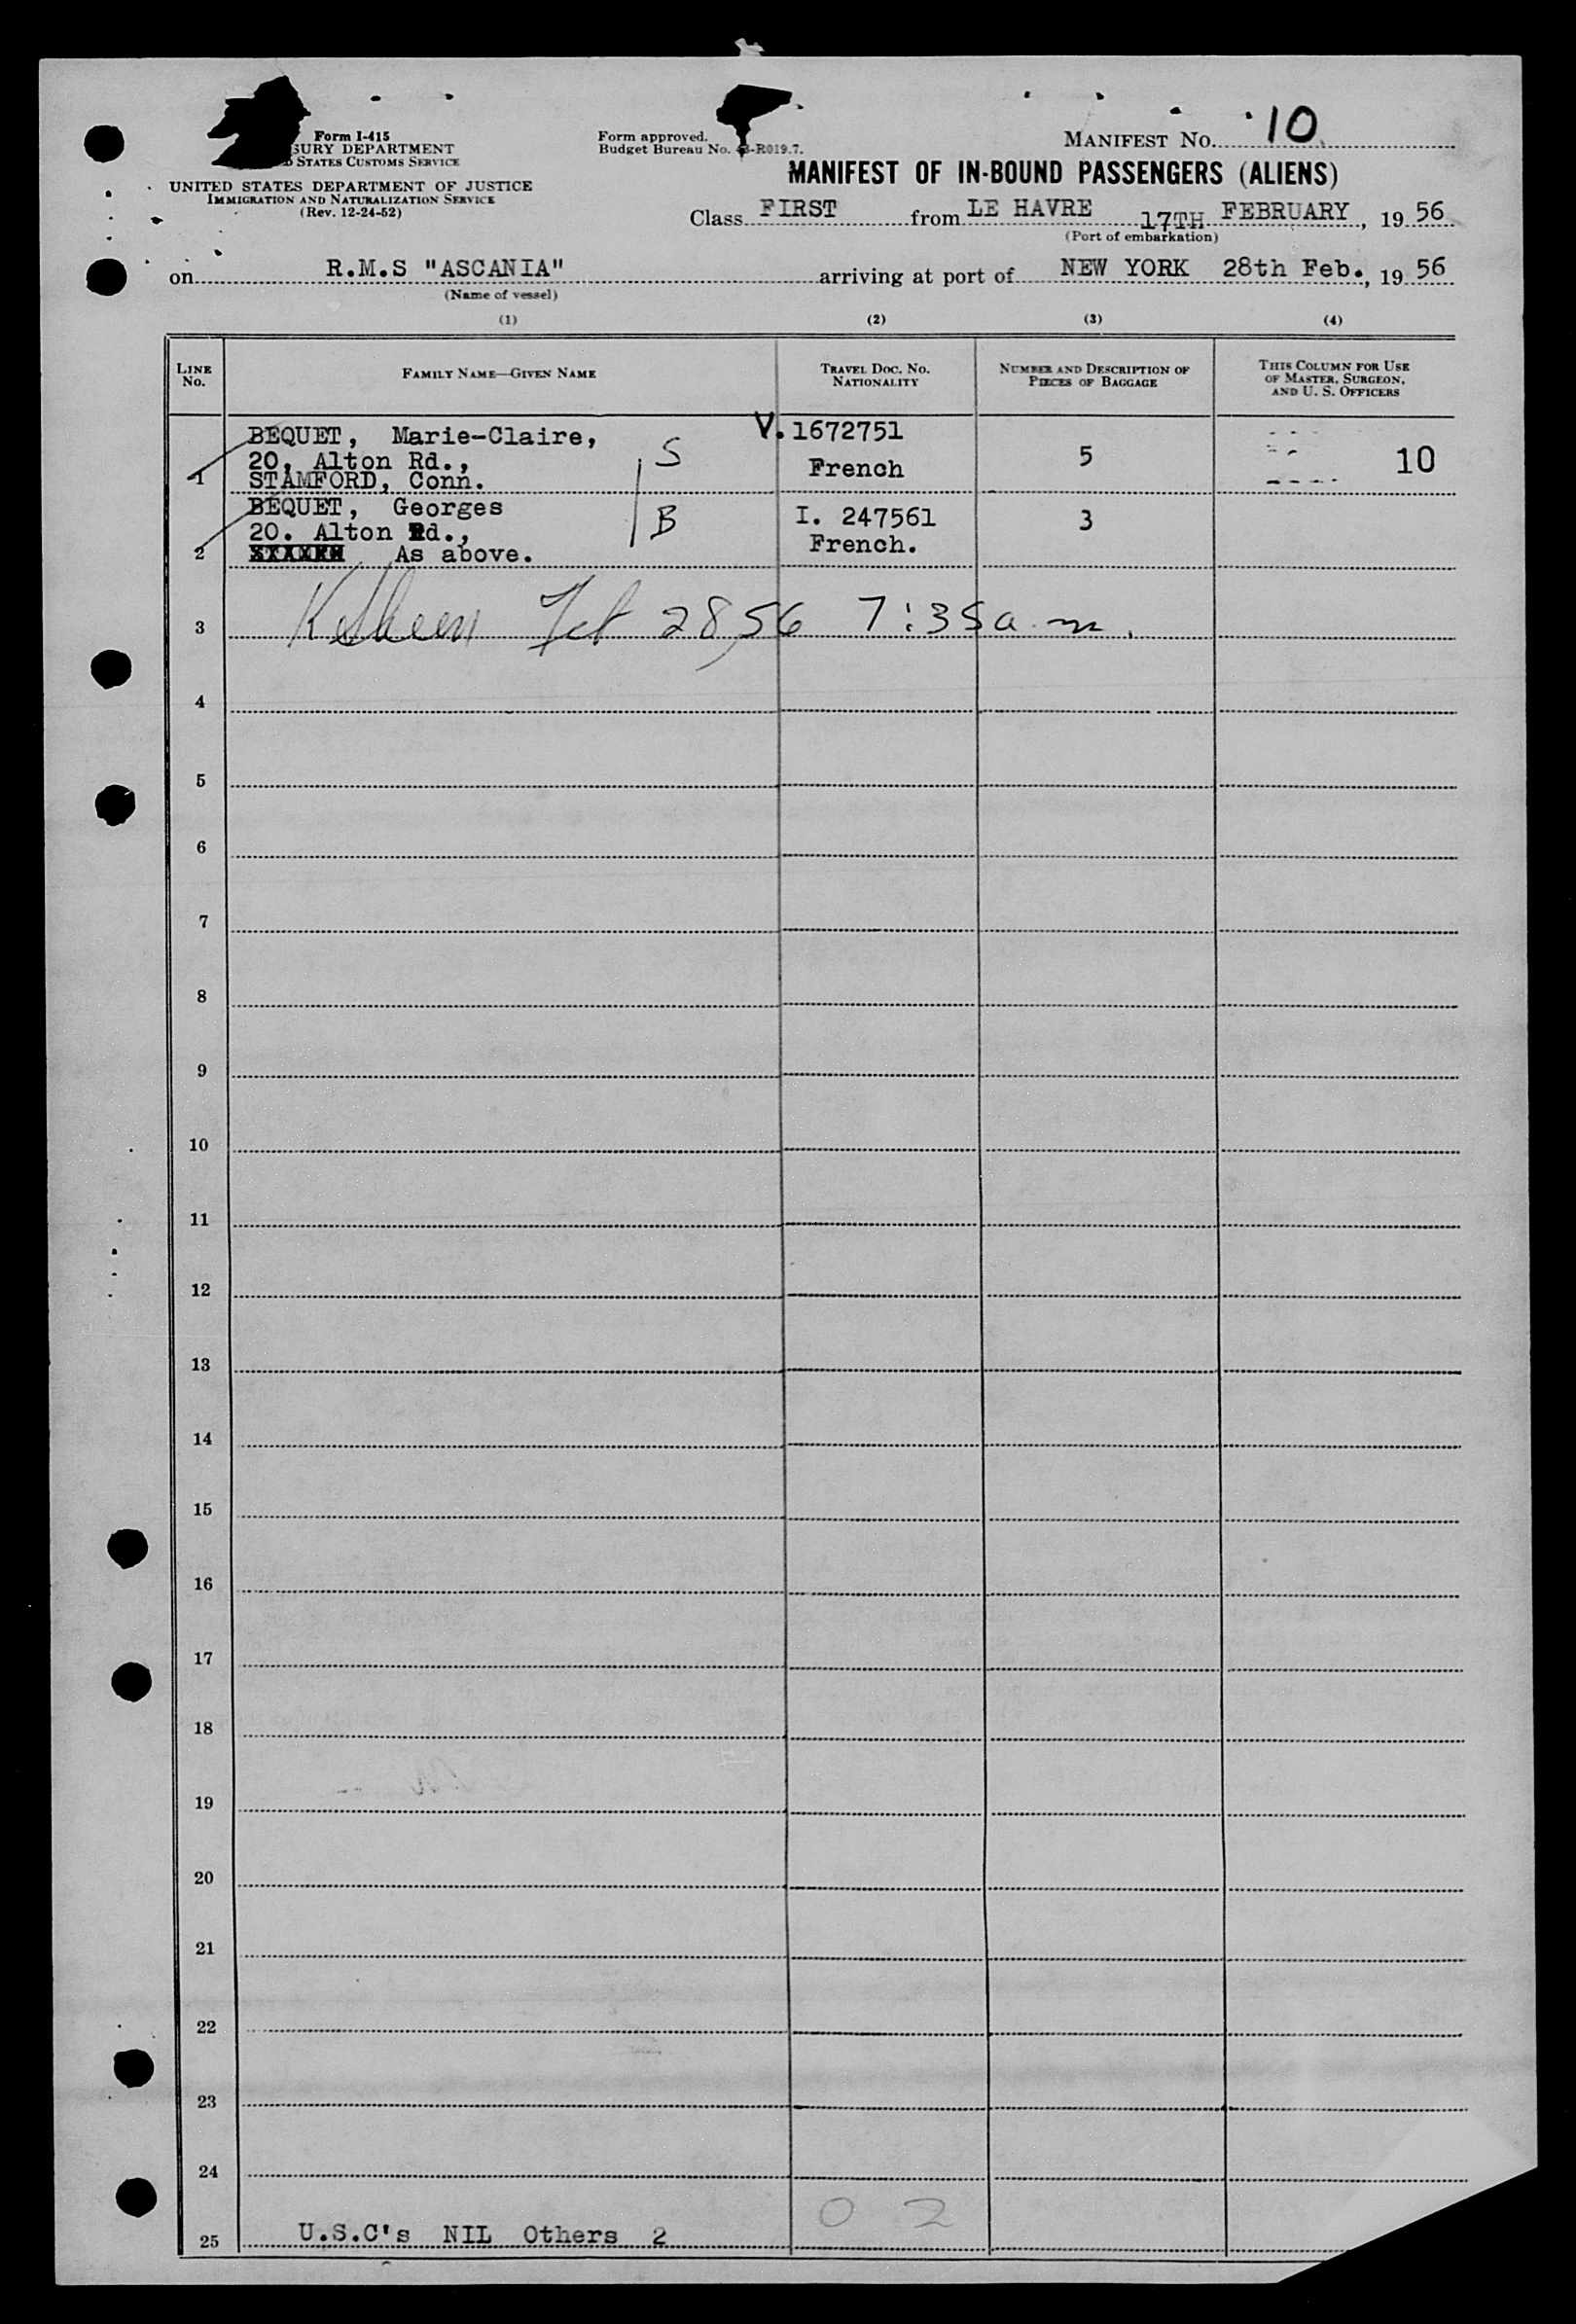 Form I-415
SURY DEPARTMENT
STATES CUSTOMS SERVICE
UNITED STATES DEPARTMENT OF JUSTICE
IMMIGRATION AND NATURALIZATION SERVICE
(Rev. 12-24-52)
Form approved.
Budget Bureau No. -R019.7.
MANIFEST No. 10
MANIFEST OF IN-BOUND PASSENGERS (ALIENS)
Class FIRST from LE HAVRE 17TH FEBRUARY, 19 56
(Port of embarkation)
on R.M.S "ASCANIA" arriving at port of NEW YORK 28th Feb., 19 56
(Name of vessel)
(1) (2) (3) (4)
LINE No. FAMILY NAME—GIVEN NAME TRAVEL DOC. No. NATIONALITY NUMBER AND DESCRIPTION OF PIECES OF BAGGAGE THIS COLUMN FOR USE OF MASTER, SURGEON, AND U. S. OFFICERS
BEQUET, Marie-Claire, V. 1672751
20, Alton Rd., S French 5 10
1 STAMFORD, Conn.
BEQUET, Georges I. 247561 3
20. Alton Rd., B
2 As above. French.
3 Feb 28, 56 7:35 a.m.
4
5
6
7
8
9
10
11
12
13
14
15
16
17
18
19
20
21
22
23
24
0 2
25 U.S.C's NIL Others 2